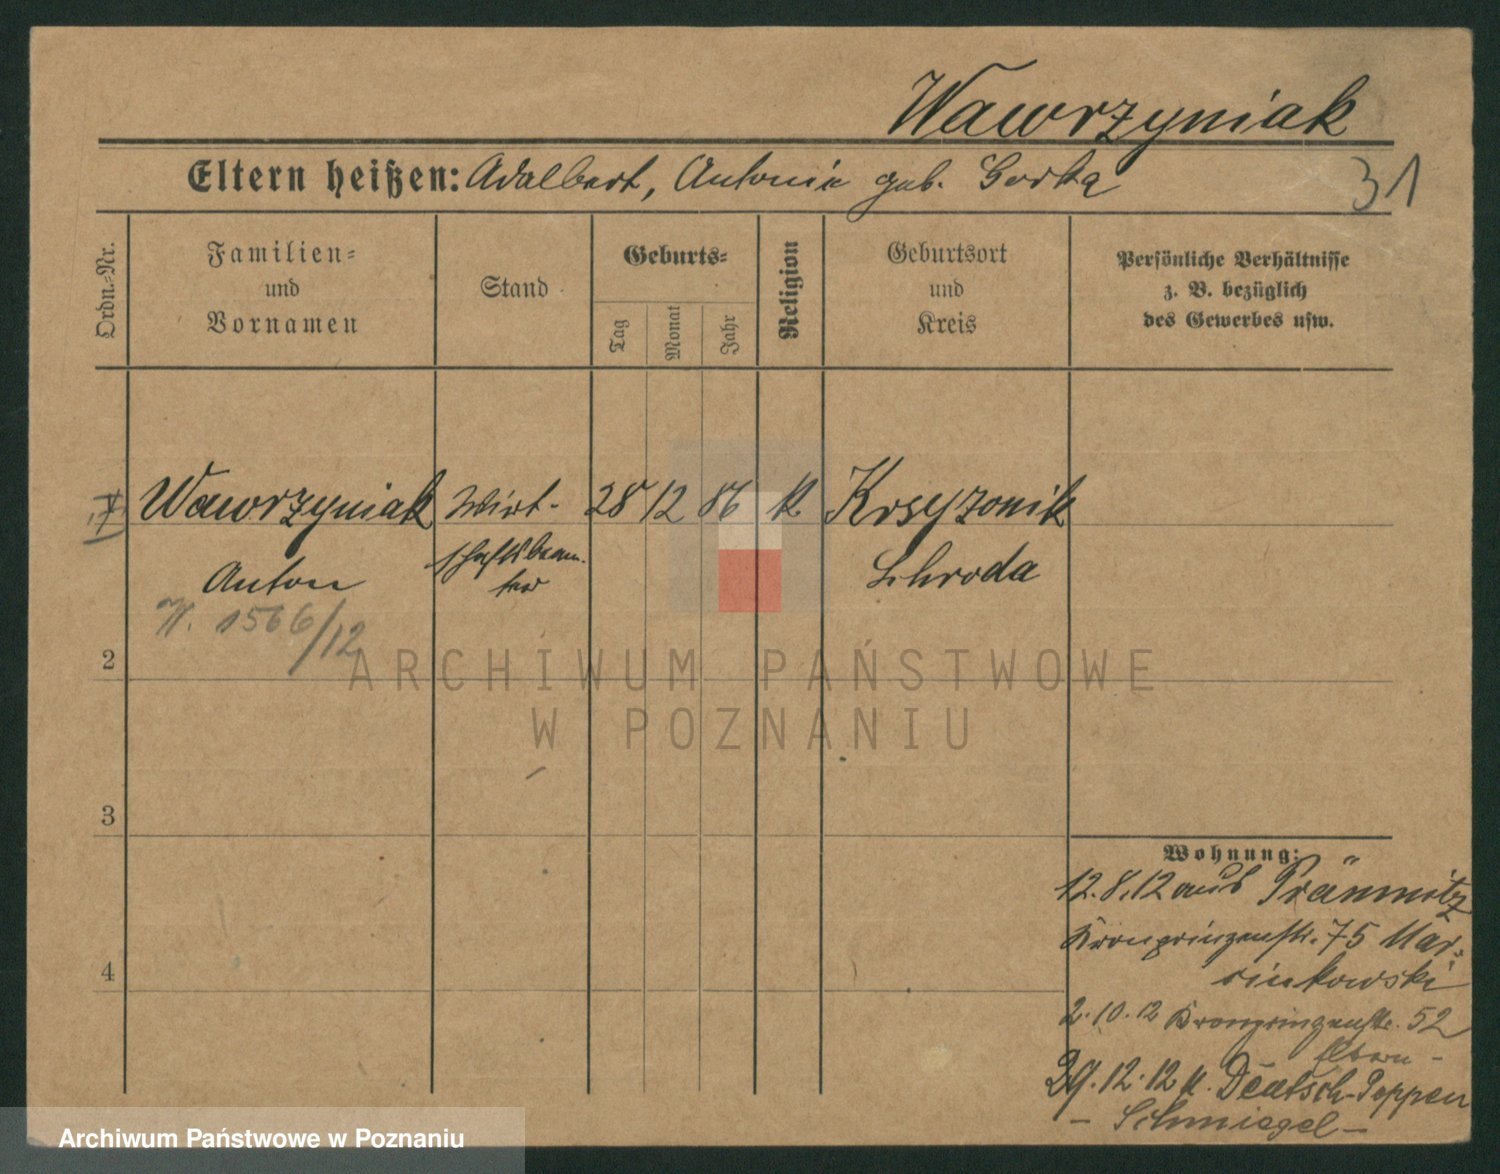 Wawrzyniak
Eltern heißen: Adalbert, Antonie geb. Gorka
31
Ordn.-Nr.
Familien-
und
Vornamen
Stand
Geburts-
Tag
Monat
Jahr
Religion
Geburtsort
und
Kreis
Persönliche Verhältnisse
z. B. bezüglich
des Gewerbes usw.
Wawrzyniak Wirt- 28 12 86 k. Krsyzonik
schaftsbeam-
ter
Anton Schroda
1566/12
2
ARCHIWUM PAŃSTWOWE
W POZNANIU
3
Wohnung:
12.8.12 aus Prämnitz
Kronprinzenstr. 75 Mar-
cinkowski
4
2.10.12 Kronprinzenstr. 52
Eltern -
29.12.12 n. Deutsch-Poppen
- Schmiegel -
Archiwum Państwowe w Poznaniu